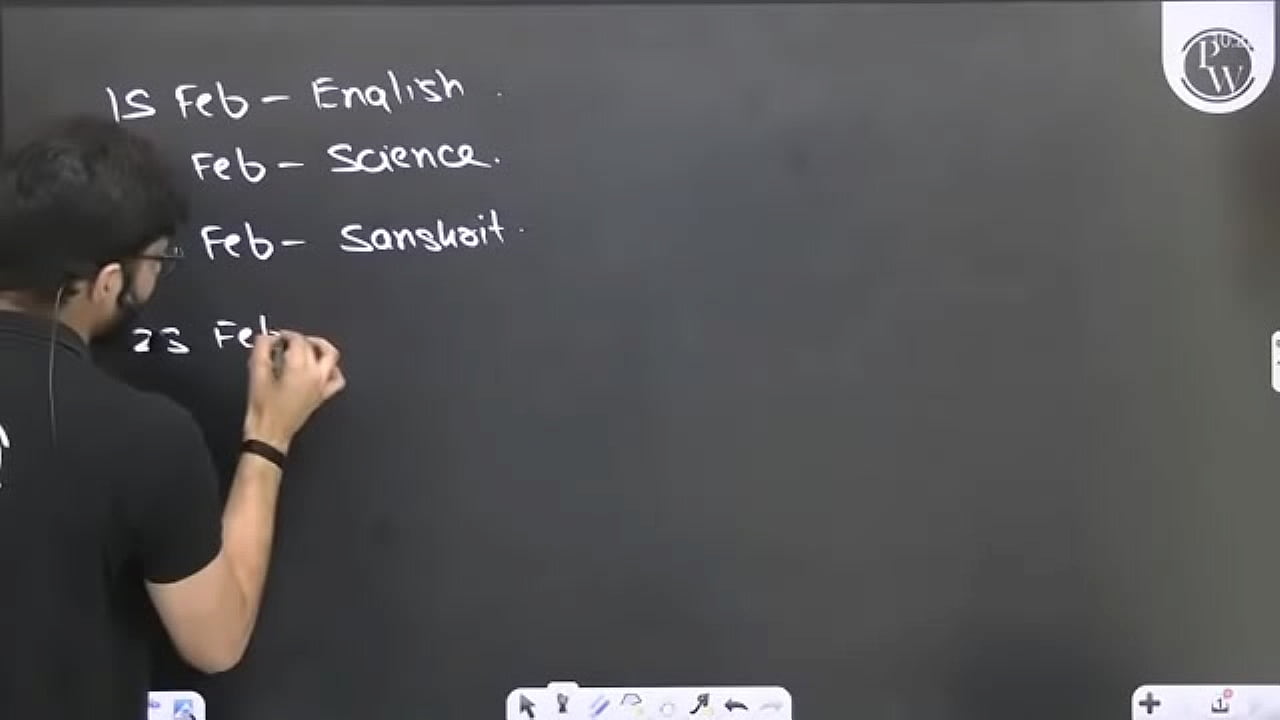 15 Feb - English
Feb - Science.
Feb - Sanskrit.
25 Feb
PW